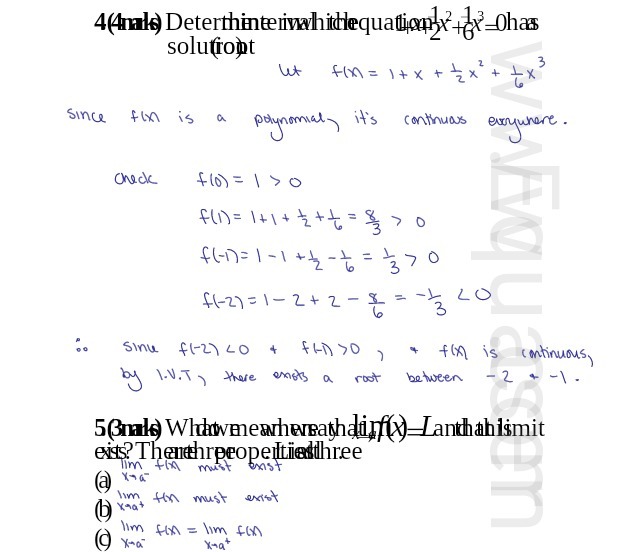 4(4 marks) Determine the interval in which the equation 1+x+1/2x²+1/6x³=0 has a
solution (root).
Let f(x) = 1 + x + 1/2 x² + 1/6 x³
Since f(x) is a polynomial, it's continuous everywhere.
Check f(0) = 1 > 0
f(1) = 1 + 1 + 1/2 + 1/6 = 8/3 > 0
f(-1) = 1 - 1 + 1/2 - 1/6 = 1/3 > 0
f(-2) = 1 - 2 + 2 - 8/6 = -1/3 < 0
∴ since f(-2) < 0 + f(-1) > 0 , + f(x) is continuous,
by I.V.T, there exists a root between -2 + -1.
5(3 marks) What do we mean when we say that lim f(x)=L and that this limit
x→a
exists? There are three properties. List all three.
(a) lim x→a⁻ f(x) must exist
(b) lim x→a⁺ f(x) must exist
(c) lim x→a⁻ f(x) = lim x→a⁺ f(x)